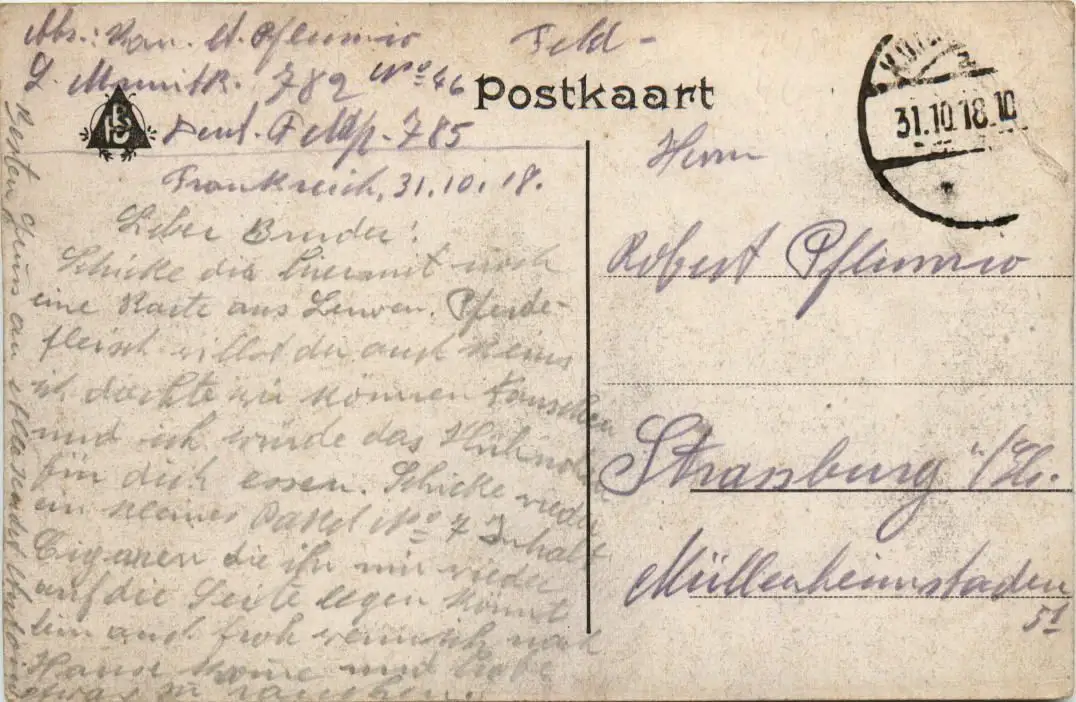 Abs.: Kan. A. Pflimio
L. Munitk. 782 No 46
Deut. Feldp. 785
Frankreich, 31.10.18.
Feld-
Postkaart
31.10.18.10
Lieber Bruder!
Schicke dir hiermit noch
eine Karte aus Leuven. Pferde-
fleisch willst du auch keins
ich dachte wir können tauschen
und ich würde das Hühnchen
für dich essen. Schicke wieder
ein kleines Paket No 7 Inhalt
Cigarren die ihr mir wieder
auf die Seite legen könnt
bin auch froh wenn ich nach
Hause komme und habe
etwas zu rauchen.
Besten Gruss an alle
Herrn
Robert Pflimio
Strassburg i/Els.
Müllenheimstaden
51